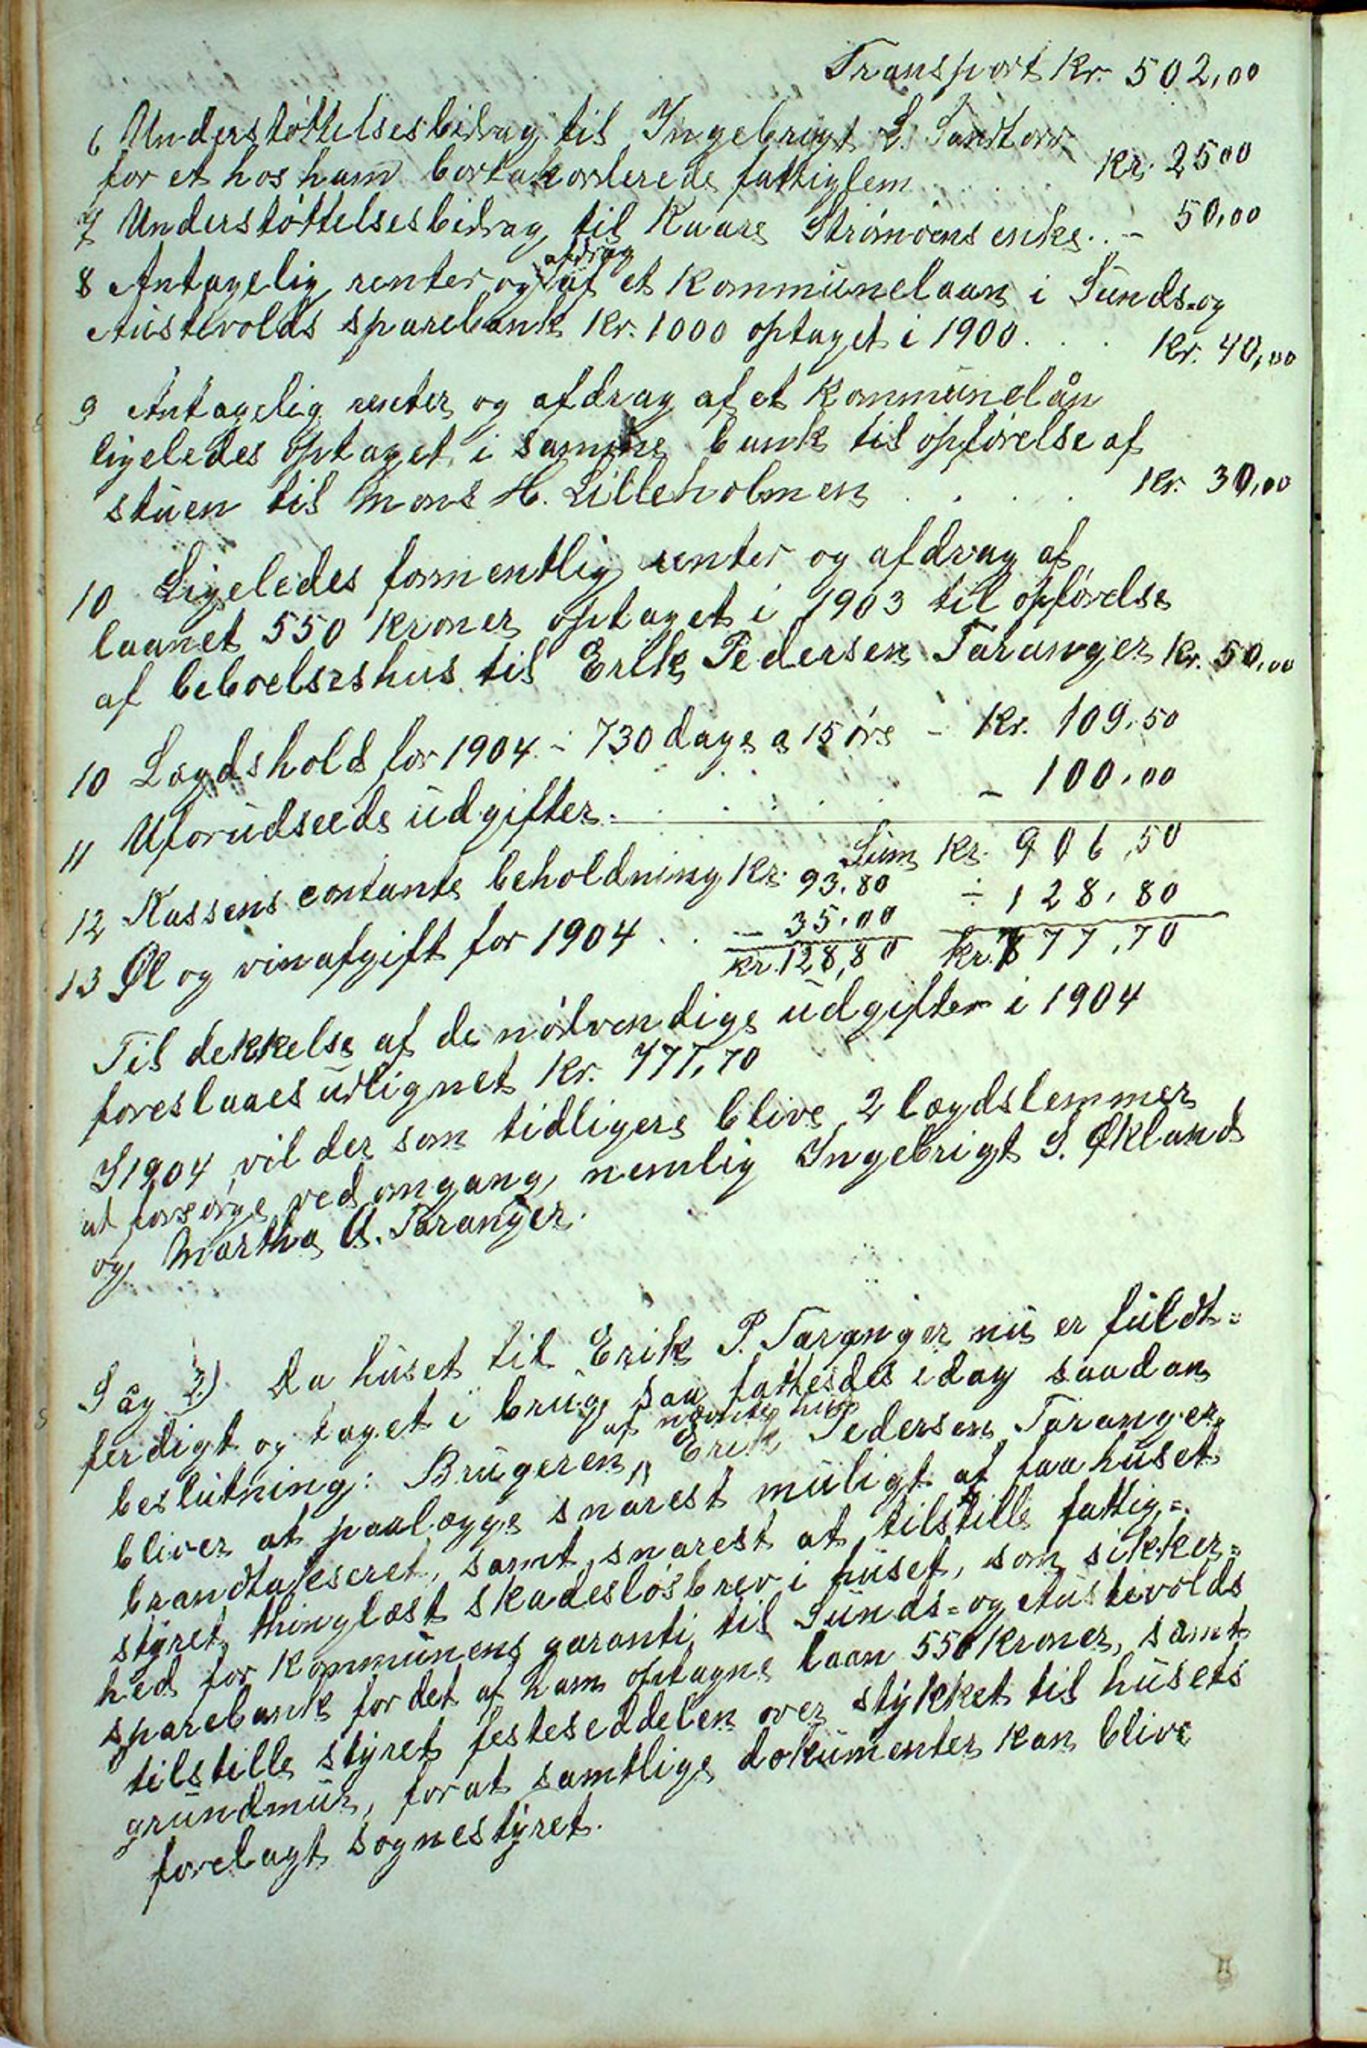 Transport kr. 502,00
6 Understøttelsesbidrag til Ingebrigt L. Sandtorv
for et hos ham bortakorderede fattiglem . . . kr. 25 00
7 Understøttelsesbidrag til Kaare Strømøens enke. . – 50,00
8 Antagelig renter og afdrag af et kommunelaan i Sunds- og
Austevolds sparebank kr. 1000 optaget i 1900 . . . kr. 40,00
9 Antagelig renter og afdrag af et kommunelån
ligeledes optaget i samme bank til opførelse af
stuen til Mons H. Lilleholmen . . . . kr. 30,00
10 Ligeledes formentlig renter og afdrag af
laanet 550 kroner optaget i 1903 til opførelse
af beboelseshus til Erik Pedersen Taranger kr. 50,00
10 Lægdshold for 1904 – 730 dage a 15 øre – kr. 109,50
11 Uforudseede udgifter . . . . . – 100,00
Sum kr. 906,50
12 Kassens contante beholdning kr. 93.80 ÷ 128,80
13 Øl og vinafgift for 1904 . . – 35.00
kr. 128,80 kr. 777,70
Til dekkelse af de nødvendige udgifter i 1904
foreslaaes udlignet kr. 777,70
I 1904 vil der som tidligere blive 2 lægdslemmer
at forsørge ved omgang, nemlig Ingebrigt S. Økland
og Martha A. Taranger.
Sag 3) Da huset til Erik P. Taranger nu er fuldt-
ferdigt og taget i brug, saa fattedes idag saadan
beslutning: Brugeren af nævnte hus Erik Pedersen Taranger
bliver at paalægge snarest muligt at faa huset
brandtakseret, samt snarest at tilstille fattig-
styret thinglæst skadesløsbrev i huset, som sikker-
hed for kommunens garanti til Sunds- og Austevolds
sparebank for det af ham optagne laan 550 kroner, samt
tilstille styret festeseddelen over stykket til husets
grundmur, forat samtlige dokumenter kan blive
forelagt sognestyret.